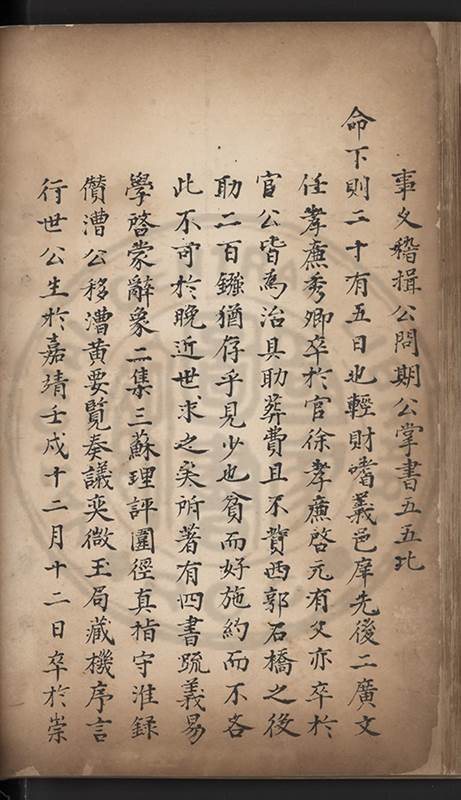 事文稽揖公問期公掌書五五比
命下則二十有五日也輕財嗜義邑庠先後二廣文
任孝廉秀卿卒於官徐孝廉啓元有父亦卒於
官公皆為治具助葬費且不貲西郭石橋之役
助二百鏹猶存乎見少也貧而好施約而不吝
此不可於晚近世求之矣所著有四書疏義易
學啓蒙辭象二集三蘇理評圍徑真指守淮錄
償漕公移漕黄要覽奏議奕微玉局藏機序言
行世公生於嘉靖壬戌十二月十二日卒於崇